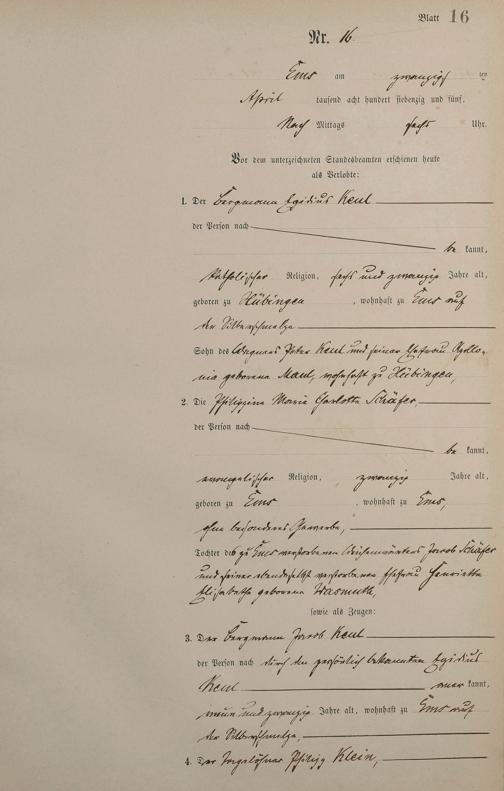 Blatt 16
Nr. 16
Ems am zwanzigsten
April tausend acht hundert siebenzig und fünf.
Nach Mittags sechs Uhr.
Vor dem unterzeichneten Standesbeamten erschienen heute
als Verlobte:
1. Der Bergmann Egidius Keul
der Person nach
be kannt,
katholischer Religion, sechs und zwanzig Jahre alt,
geboren zu Hübingen, wohnhaft zu Ems auf
der Silberschmelze
Sohn des Wagners Peter Keul und seiner Ehefrau Apollo-
nia geborene Maul, wohnhaft zu Hübingen,
2. Die Philippine Maria Charlotte Schäfer
der Person nach
be kannt,
evangelischer Religion, zwanzig Jahre alt,
geboren zu Ems, wohnhaft zu Ems,
ohne besonderes Gewerbe,
Tochter des zu Ems verstorbenen Jacob Schäfer
und seiner daselbst verstorbenen Ehefrau Henriette
Elisabetha geborene Wasmuth,
sowie als Zeugen:
3. Der Bergmann Jacob Keul
der Person nach durch den persönlich bekannten Egidius
Keul aner kannt,
neun und zwanzig Jahre alt, wohnhaft zu Ems auf
der Silberschmelze,
4. Der Tagelöhner Philipp Klein,